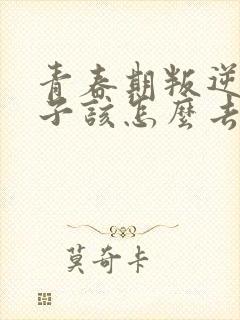 青春期叛逆
子该怎麼去
莫奇卡